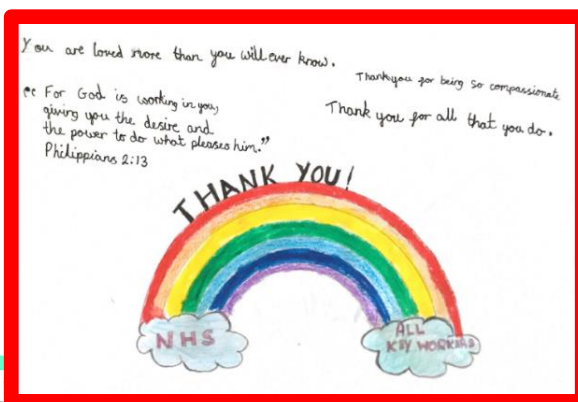 You are loved more than you will ever know.
Thankyou for being so compassionate
"For God is working in you,
giving you the desire and
the power to do what pleases him."
Philippians 2:13
Thank you for all that you do.
THANK YOU!
NHS
ALL
KEY WORKERS